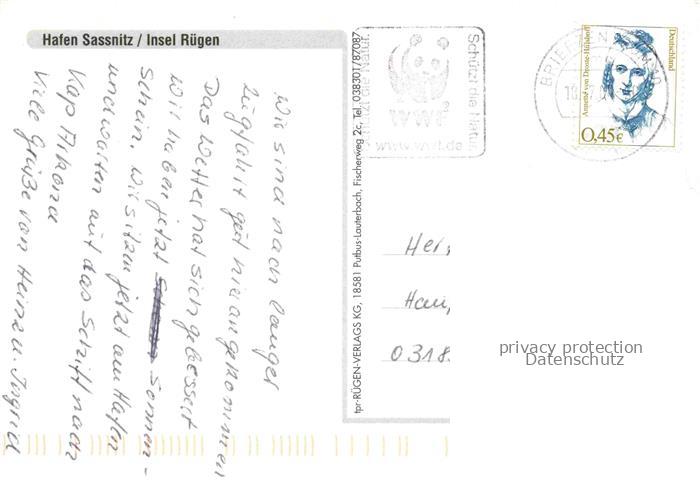 Hafen Sassnitz / Insel Rügen
Wir sind nach langer
Zugfahrt gut hier angekommen
Das Wetter hat sich gebessert
wir haben jetzt Sonnen-
schein. Wir sitzen jetzt am Hafen
und warten auf das Schiff nach
Kap Arkona
Viele Grüße von Heinz u. Ingrid
tpr-RÜGEN-VERLAGS KG, 18581 Putbus-Lauterbach, Fischerweg 2c, Tel. 038301/87087
Schützt die Natur.
WWF
Schützt die Natur.
www.wwf.de
BRIEFZEN
Annette von Droste-Hülshoff
Deutschland
0,45€
Her
Hau
0318
privacy protection
Datenschutz